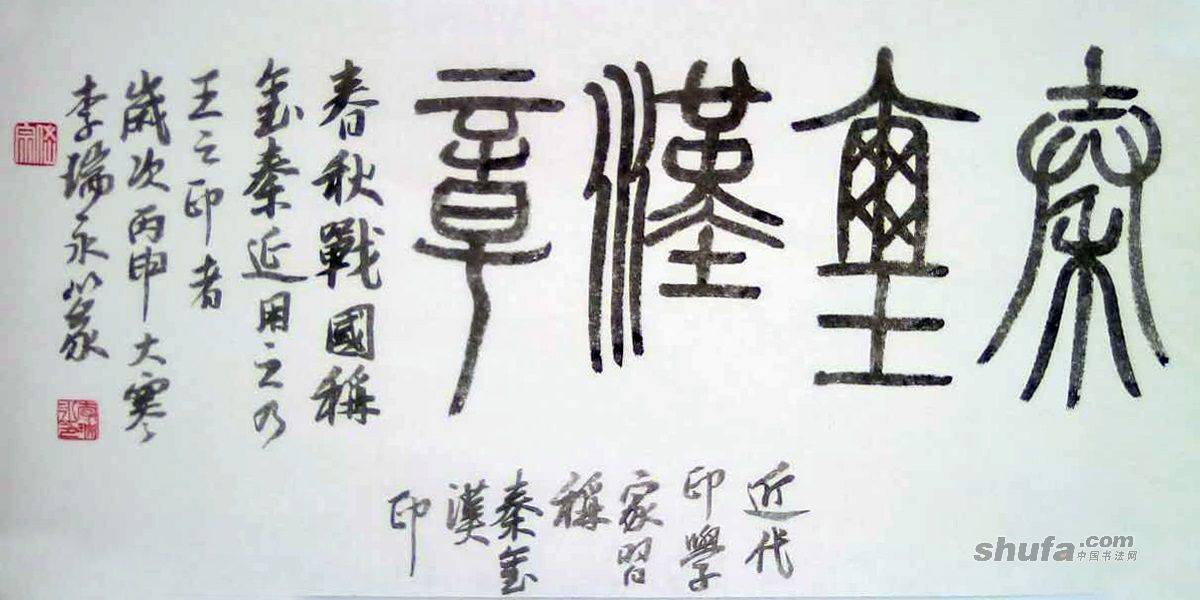 秦壐漢章
春秋戰國稱
玺秦延用之乃
王之印者
歲次丙申大寒
李瑞永篆
近代
印學
家習
稱
秦玺
漢
印
shufa.com
中国书法网